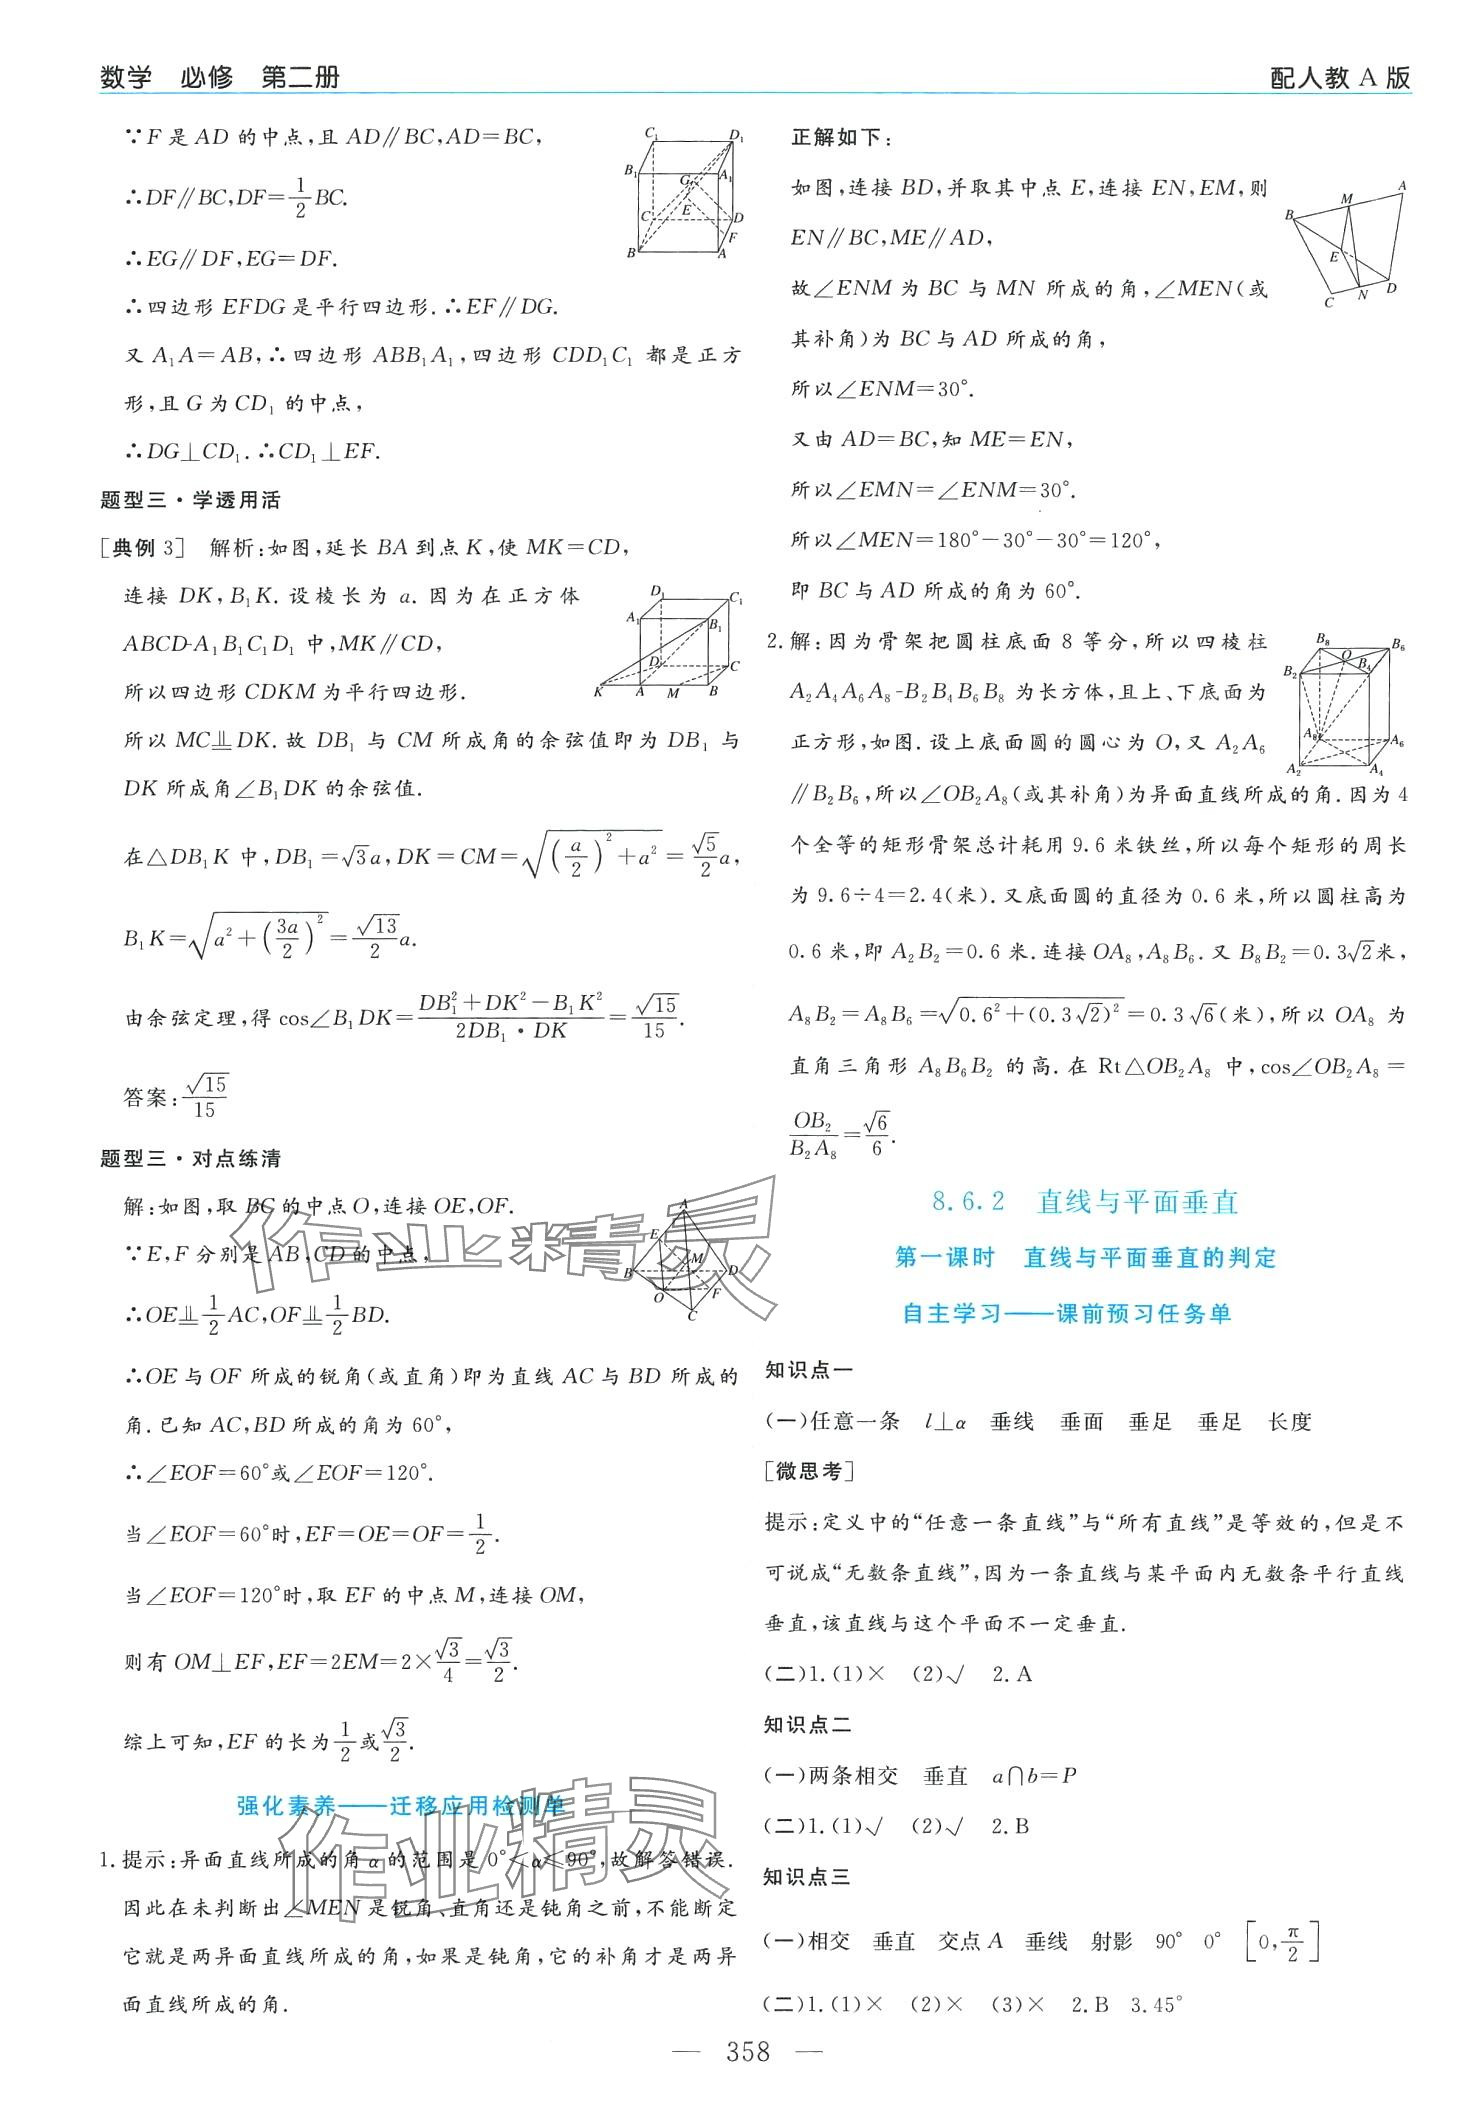 数学 必修 第二册
配人教 A 版
∵F 是 AD 的中点,且 AD∥BC,AD=BC,
∴DF∥BC,DF=1/2 BC.
∴EG∥DF,EG=DF.
∴四边形 EFDG 是平行四边形.∴EF∥DG.
又 A₁A=AB,∴四边形 ABB₁A₁,四边形 CDD₁C₁ 都是正方
形,且 G 为 CD₁ 的中点,
∴DG⊥CD₁.∴CD₁⊥EF.
C₁ D₁ B₁ A₁ G E C D F B A
题型三·学透用活
[典例 3] 解析:如图,延长 BA 到点 K,使 MK=CD,
连接 DK,B₁K.设棱长为 a.因为在正方体
ABCD-A₁B₁C₁D₁ 中,MK∥CD,
所以四边形 CDKM 为平行四边形.
D₁ C₁ A₁ B₁ D C K A M B
所以 MC⫫DK.故 DB₁ 与 CM 所成角的余弦值即为 DB₁ 与
DK 所成角∠B₁DK 的余弦值.
在△DB₁K 中,DB₁=√3a,DK=CM=√((a/2)²+a²)=√5/2 a,
B₁K=√(a²+(3a/2)²)=√13/2 a.
由余弦定理,得 cos∠B₁DK=(DB₁²+DK²-B₁K²)/(2DB₁·DK)=√15/15.
答案:√15/15
题型三·对点练清
解:如图,取 BC 的中点 O,连接 OE,OF.
∵E,F 分别是 AB,CD 的中点,
∴OE⫫1/2 AC,OF⫫1/2 BD.
A E M B D O F C
∴OE 与 OF 所成的锐角(或直角)即为直线 AC 与 BD 所成的
角.已知 AC,BD 所成的角为 60°,
∴∠EOF=60°或∠EOF=120°.
当∠EOF=60°时,EF=OE=OF=1/2.
当∠EOF=120°时,取 EF 的中点 M,连接 OM,
则有 OM⊥EF,EF=2EM=2×√3/4=√3/2.
综上可知,EF 的长为1/2或√3/2.
强化素养——迁移应用检测单
1.提示:异面直线所成的角 α 的范围是 0°<α≤90°,故解答错误.
因此在未判断出∠MEN 是锐角、直角还是钝角之前,不能断定
它就是两异面直线所成的角,如果是钝角,它的补角才是两异
面直线所成的角.
正解如下:
如图,连接 BD,并取其中点 E,连接 EN,EM,则
EN∥BC,ME∥AD,
故∠ENM 为 BC 与 MN 所成的角,∠MEN(或
其补角)为 BC 与 AD 所成的角,
所以∠ENM=30°.
又由 AD=BC,知 ME=EN,
所以∠EMN=∠ENM=30°.
所以∠MEN=180°-30°-30°=120°,
即 BC 与 AD 所成的角为 60°.
A M B E C N D
2.解:因为骨架把圆柱底面 8 等分,所以四棱柱
A₂A₄A₆A₈-B₂B₄B₆B₈ 为长方体,且上、下底面为
正方形,如图.设上底面圆的圆心为 O,又 A₂A₆
∥B₂B₆,所以∠OB₂A₈(或其补角)为异面直线所成的角.因为 4
个全等的矩形骨架总计耗用 9.6 米铁丝,所以每个矩形的周长
为 9.6÷4=2.4(米).又底面圆的直径为 0.6 米,所以圆柱高为
0.6 米,即 A₂B₂=0.6 米.连接 OA₈,A₈B₆.又 B₈B₂=0.3√2米,
A₈B₂=A₈B₆=√(0.6²+(0.3√2)²)=0.3√6(米),所以 OA₈ 为
直角三角形 A₈B₆B₂ 的高.在 Rt△OB₂A₈ 中,cos∠OB₂A₈=
OB₂/B₂A₈=√6/6.
B₈ B₆ O B₂ B₄ A₈ A₆ A₂ A₄
8.6.2 直线与平面垂直
第一课时 直线与平面垂直的判定
自主学习——课前预习任务单
知识点一
(一)任意一条 l⊥α 垂线 垂面 垂足 垂足 长度
[微思考]
提示:定义中的“任意一条直线”与“所有直线”是等效的,但是不
可说成“无数条直线”,因为一条直线与某平面内无数条平行直线
垂直,该直线与这个平面不一定垂直.
(二)1.(1)× (2)√ 2.A
知识点二
(一)两条相交 垂直 a∩b=P
(二)1.(1)√ (2)√ 2.B
知识点三
(一)相交 垂直 交点 A 垂线 射影 90° 0° [0,π/2]
(二)1.(1)× (2)× (3)× 2.B 3.45°
作业精灵
作业精灵
— 358 —